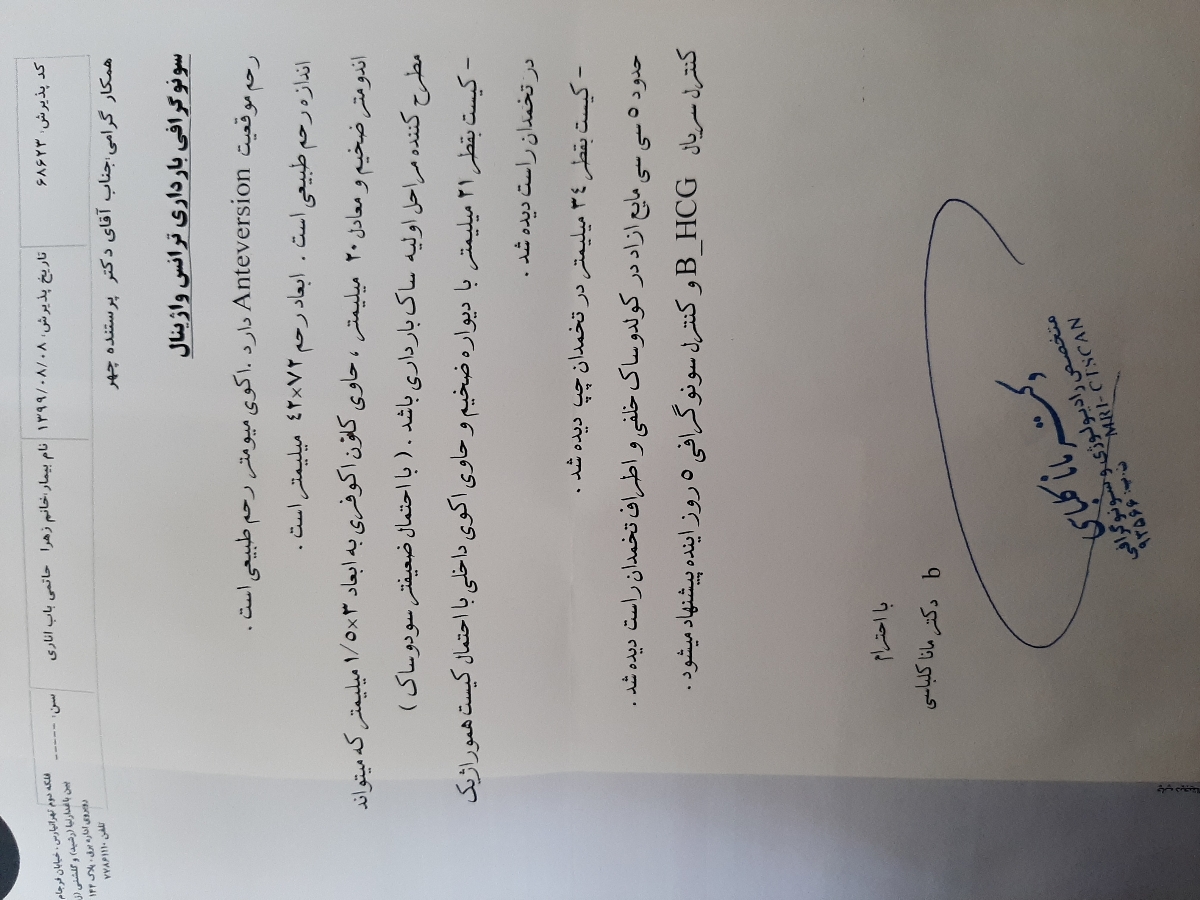 کد پذیرش: ۶۸۶۲۳
تاریخ پذیرش: ۱۳۹۹/۰۸/۰۸
نام بیمار:خانم زهرا حاتمی باب اناری
سن: -----
فلکه دوم تهرانپارس، خیابان فرجام
روبروی اداره برق، پلاک ۱۴۲
تلفن: ۷۷۸۶۱۱۱۰
همکار گرامی:جناب آقای دکتر پرستنده چهر
سونوگرافی بارداری ترانس واژینال
رحم موقعیت Anteversion دارد .اکوی میومتر رحم طبیعی است .
اندازه رحم طبیعی است . ابعاد رحم ۷۲×٤۲ میلیمتر است .
اندومتر ضخیم و معادل ۲۰ میلیمتر ، حاوی کلکون اکوفری به ابعاد ۳×۱/۵ میلیمتر که میتواند
مطرح کننده مراحل اولیه ساک بارداری باشد . ( با احتمال ضعیفتر سودوساک )
- کیست بقطر ۲۱ میلیمتر با دیواره ضخیم و حاوی اکوی داخلی با احتمال کیست هموراژیک
در تخمدان راست دیده شد .
- کیست بقطر ۳٤ میلیمتر در تخمدان چپ دیده شد .
حدود ۵ سی سی مایع ازاد در کولدوساک خلفی و اطراف تخمدان راست دیده شد .
کنترل سریال B_HCG و کنترل سونوگرافی ۵ روز اینده پیشنهاد میشود .
با احترام
دکتر مانا کلباسی b
دکتر مانا کلباسی
متخصص رادیولوژی و سونوگرافی
MRI-CTSCAN
ن.پ: ۹۲۵۶۶